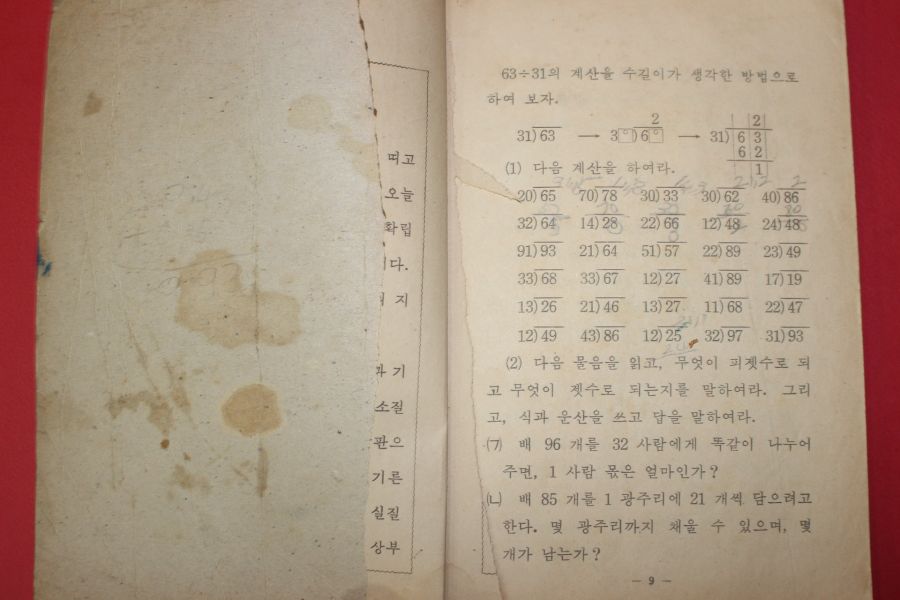 떠고
오늘
확립
다.
지
과 기
소질
판으
기른
실질
상부
63÷31의 계산을 수길이가 생각한 방법으로
하여 보자.
2 2
31)63 → 3□)6□ → 31)6 3
6 2
1
(1) 다음 계산을 하여라.
20)65 70)78 30)33 30)62 40)86
32)64 14)28 22)66 12)48 24)48
91)93 21)64 51)57 22)89 23)49
33)68 33)67 12)27 41)89 17)19
13)26 21)46 13)27 11)68 22)47
12)49 43)86 12)25 32)97 31)93
(2) 다음 물음을 읽고, 무엇이 피젯수로 되
고 무엇이 젯수로 되는지를 말하여라. 그리
고, 식과 운산을 쓰고 답을 말하여라.
(ㄱ) 배 96 개를 32 사람에게 똑같이 나누어
주면, 1 사람 몫은 얼마인가?
(ㄴ) 배 85 개를 1 광주리에 21 개씩 담으려고
한다. 몇 광주리까지 채울 수 있으며, 몇
개가 남는가?
— 9 —